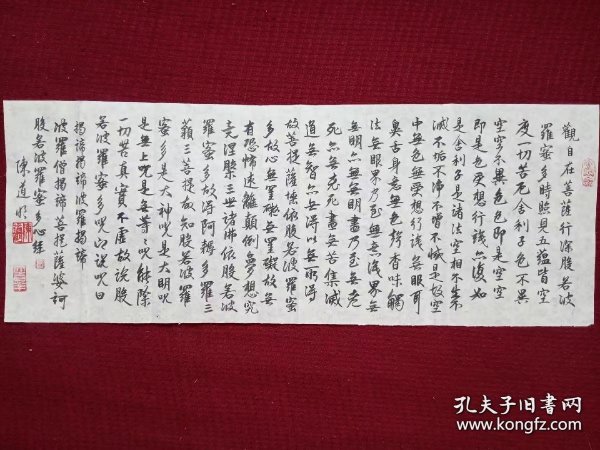 觀自在菩薩行深般若波
羅蜜多時照見五蘊皆空
度一切苦厄舍利子色不異
空空不異色色即是空空
即是色受想行識亦復如
是舍利子是諸法空相不生不
滅不垢不淨不增不減是故空
中無色無受想行識無眼耳
鼻舌身意無色聲香味觸
法無眼界乃至無意識界無
無明亦無無明盡乃至無老
死亦無老死盡無苦集滅
道無智亦無得以無所得
故菩提薩埵依般若波羅蜜
多故心無罣礙無罣礙故無
有恐怖遠離顛倒夢想究
竟涅槃三世諸佛依般若波
羅蜜多故得阿耨多羅三
藐三菩提故知般若波羅
蜜多是大神咒是大明咒
是無上咒是無等々咒能除
一切苦真實不虛故說般
若波羅蜜多咒即說咒曰
揭諦揭諦波羅揭諦
波羅僧揭諦菩提薩婆訶
般若波羅蜜多心經
陳道明
孔夫子旧书网
www.kongfz.com